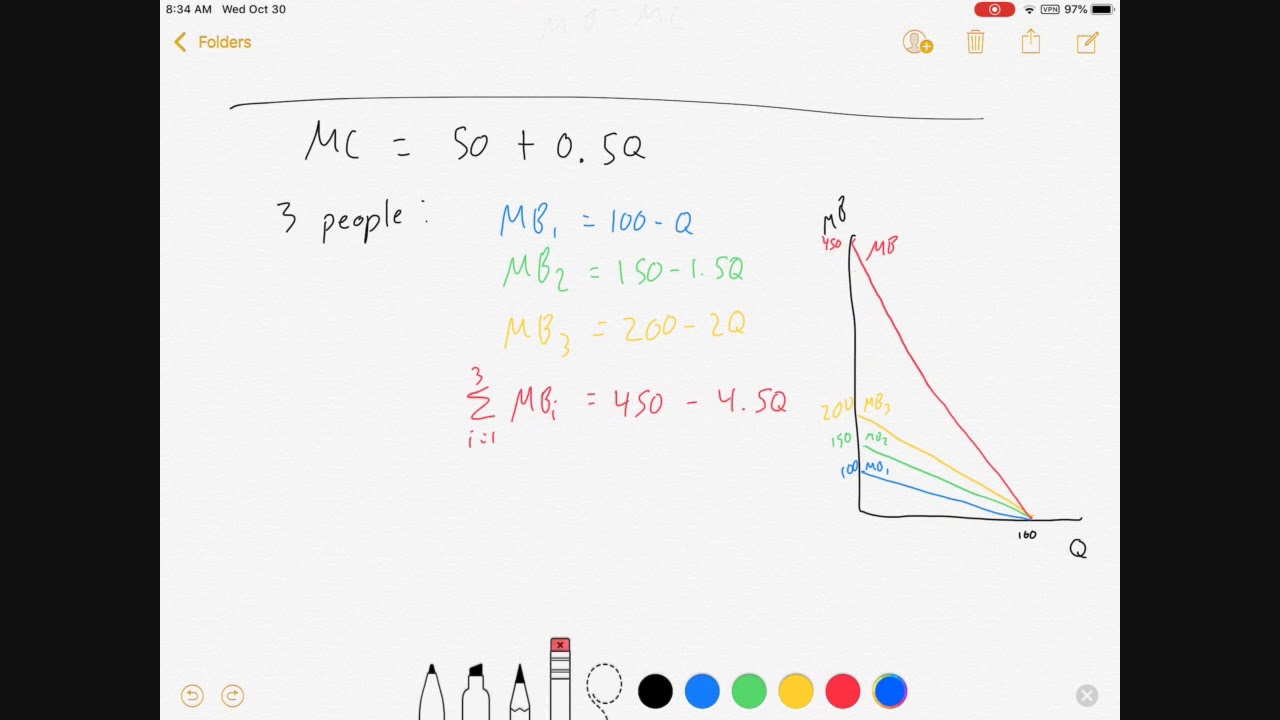 8:34 AM Wed Oct 30
VPN 97%
Folders
MB = MC
MC = 50 + 0.5Q
3 people :
MB₁ = 100 - Q
MB₂ = 150 - 1.5Q
MB₃ = 200 - 2Q
3
∑ MBᵢ = 450 - 4.5Q
i=1
MB
450 MB
200 MB₃
150 MB₂
100 MB₁
100
Q